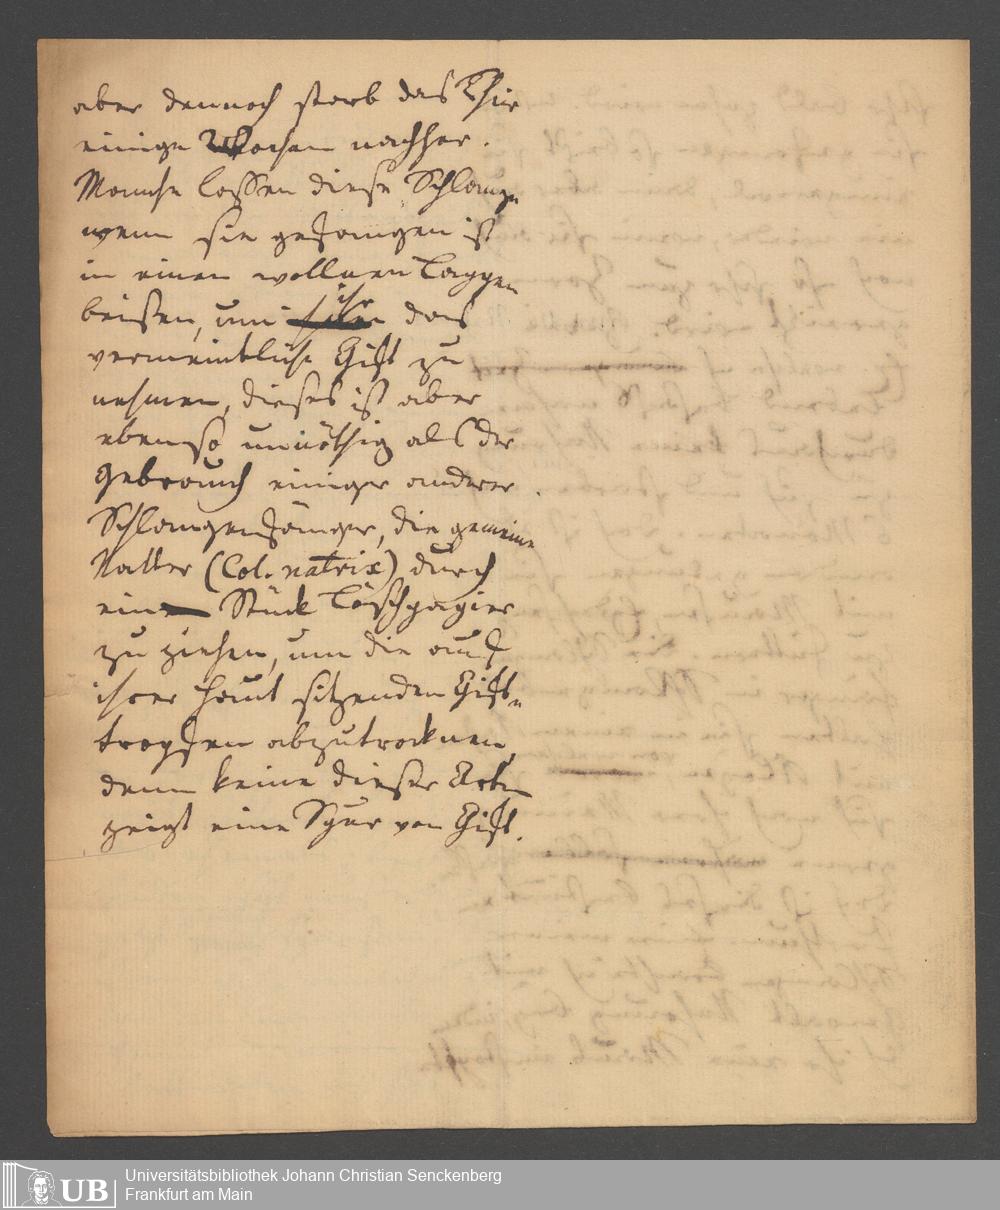 aber dennoch starb das Thier
einige Wochen nachher.
Manche lassen diese Schlange
wenn sie gefangen ist
in einen wollnen Lappen
beißen, um ihr das
vermeintliche Gift zu
nehmen, dieses ist aber
ebenso unnöthig als der
Gebrauch einiger anderer
Schlangenfänger, die gemeine
Natter (Col. natrix) durch
ein Stück Löschpapier
zu ziehen, um die auf
ihrer Haut sitzenden Gift-
tropfen abzutrocknen,
denn keine dieser Arten
zeigt eine Spur von Gift.
UB
Universitätsbibliothek Johann Christian Senckenberg
Frankfurt am Main